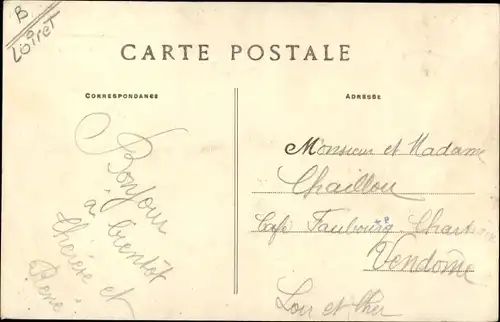 B
Loiret
CARTE POSTALE
CORRESPONDANCE
ADRESSE
Bonjour
à bientôt
thérèse et
René
Monsieur et Madame
Chaillou
Café Faubourg Chartrain
Vendôme
Loir et Cher